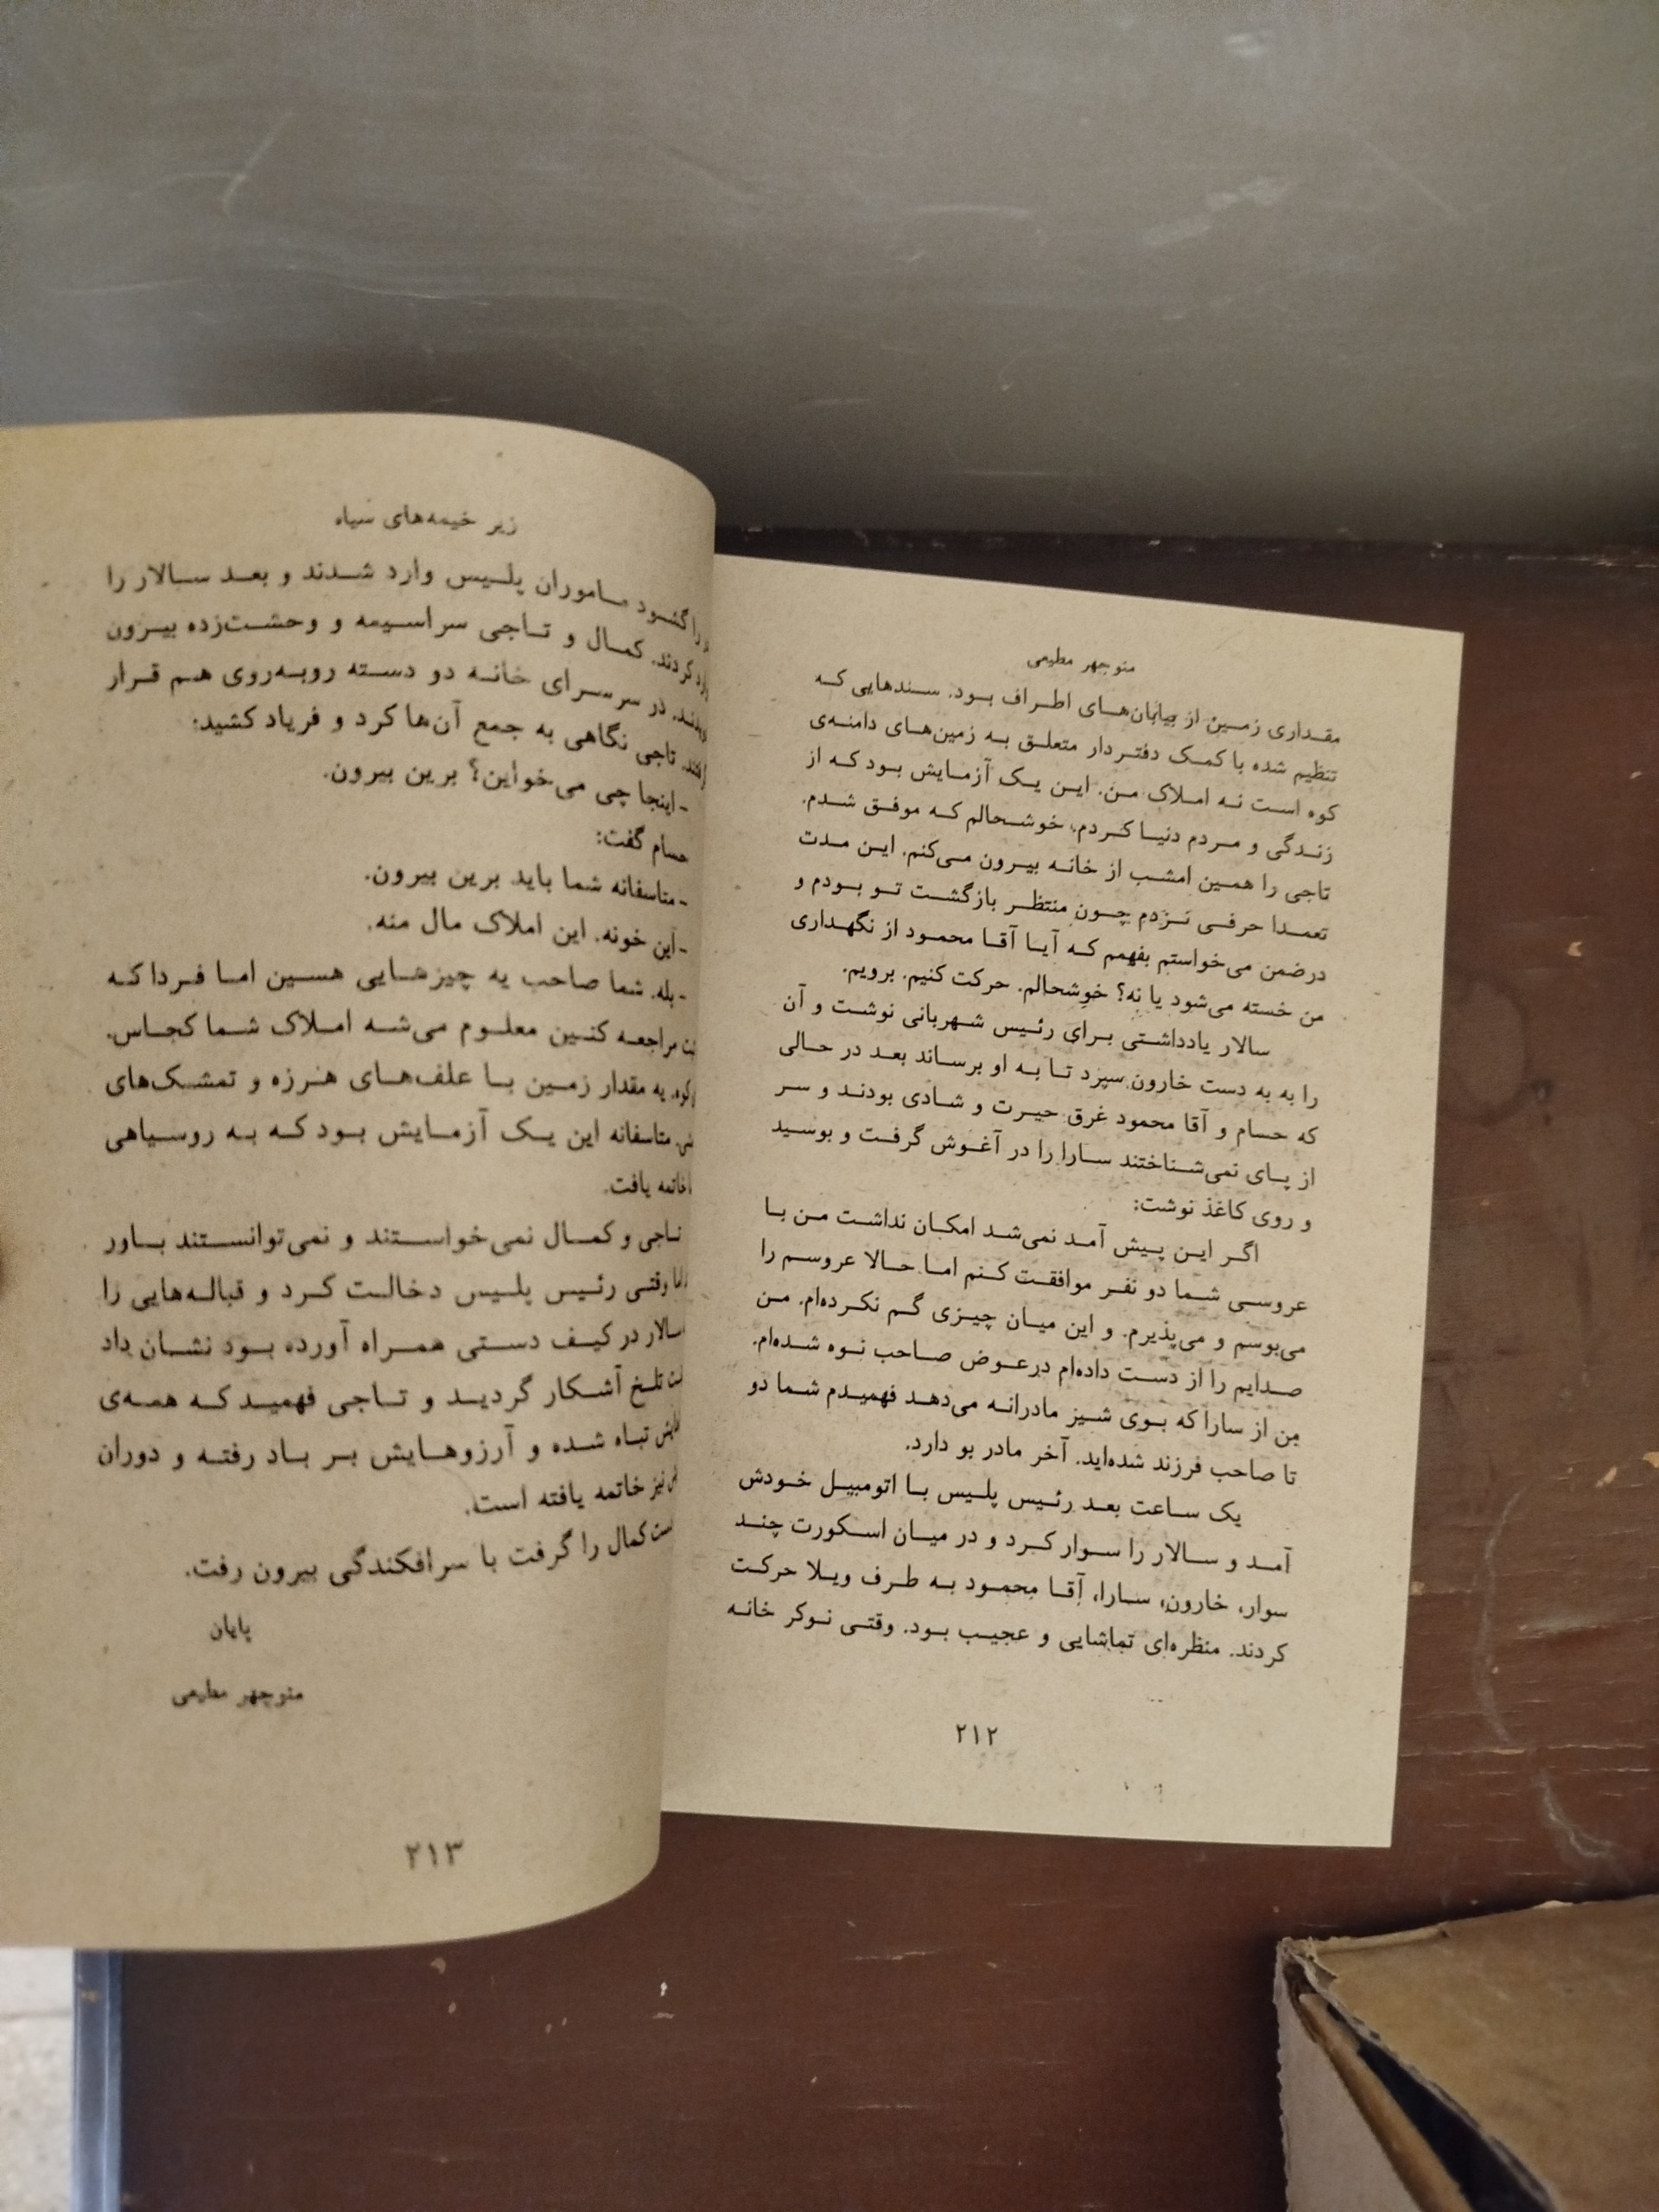 منوچهر مطیعی
مقداری زمین از بیابان‌های اطراف بود. سندهایی که
تنظیم شده با کمک دفتردار متعلق به زمین‌های دامنه‌ی
کوه است نه املاک من. این یک آزمایش بود که از
زندگی و مردم دنیا کردم، خوشحالم که موفق شدم.
تاجی را همین امشب از خانه بیرون می‌کنم. این مدت
تعمدا حرفی نزدم چون منتظر بازگشت تو بودم و
درضمن می‌خواستم بفهمم که آیا آقا محمود از نگهداری
من خسته می‌شود یا نه؟ خوشحالم. حرکت کنیم. برویم.
سالار یادداشتی برای رئیس شهربانی نوشت و آن
را به به دست خارون سپرد تا به او برساند بعد در حالی
که حسام و آقا محمود غرق حیرت و شادی بودند و سر
از پای نمی‌شناختند سارا را در آغوش گرفت و بوسید
و روی کاغذ نوشت:
اگر این پیش آمد نمی‌شد امکان نداشت من با
عروسی شما دو نفر موافقت کنم اما حالا عروسم را
می‌بوسم و می‌پذیرم. و این میان چیزی گم نکرده‌ام. من
صدایم را از دست داده‌ام درعوض صاحب نوه شده‌ام.
من از سارا که بوی شیز مادرانه می‌دهد فهمیدم شما دو
تا صاحب فرزند شده‌اید. آخر مادر بو دارد.
یک ساعت بعد رئیس پلیس با اتومبیل خودش
آمد و سالار را سوار کرد و در میان اسکورت چند
سوار، خارون، سارا، آقا محمود به طرف ویلا حرکت
کردند. منظره‌ای تماشایی و عجیب بود. وقتی نوکر خانه
۲۱۲
زیر خیمه‌های سیاه
را گشود ماموران پلیس وارد شدند و بعد سالار را
کردند. کمال و تاجی سراسیمه و وحشت‌زده بیرون
در سرسرای خانه دو دسته روبه‌روی هم قرار
تاجی نگاهی به جمع آن‌ها کرد و فریاد کشید:
- اینجا چی می‌خواین؟ برین بیرون.
حسام گفت:
- متاسفانه شما باید برین بیرون.
- این خونه. این املاک مال منه.
- بله. شما صاحب یه چیزهایی هسین اما فردا که
مراجعه کنین معلوم می‌شه املاک شما کجاس.
یه مقدار زمین با علف‌های هرزه و تمشک‌های
متاسفانه این یک آزمایش بود که به روسیاهی
خاتمه یافت.
تاجی و کمال نمی‌خواستند و نمی‌توانستند باور
وقتی رئیس پلیس دخالت کرد و قباله‌هایی را
سالار در کیف دستی همراه آورده بود نشان داد
تلخ آشکار گردید و تاجی فهمید که همه‌ی
تباه شده و آرزوهایش بر باد رفته و دوران
نیز خاتمه یافته است.
کمال را گرفت با سرافکندگی بیرون رفت.
پایان
منوچهر مطیعی
۲۱۳